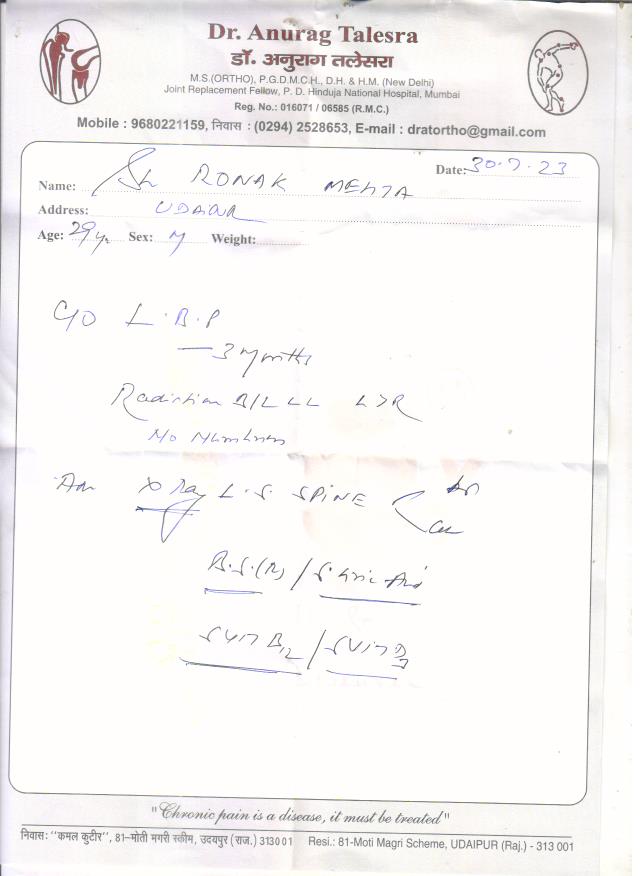 Dr. Anurag Talesra
डॉ. अनुराग तलेसरा
M.S.(ORTHO), P.G.D.M.C.H., D.H. & H.M. (New Delhi)
Joint Replacement Fellow, P. D. Hinduja National Hospital, Mumbai
Reg. No.: 016071 / 06585 (R.M.C.)
Mobile : 9680221159, निवास : (0294) 2528653, E-mail : dratortho@gmail.com
Date: 30.7.23
Name: Sh RONAK MEHTA
Address: UDAIPUR
Age: 29 yr Sex: M Weight:
C/O L.B.P
— 3 months
Radiation B/L LL L>R
No Numbness
Adv X Ray L.S. SPINE AP
Lat
B.S.(R) / S. Uric Acid
S Vit B12 / S Vit D3
"Chronic pain is a disease, it must be treated"
निवास: "कमल कुटीर", 81-मोती मगरी स्कीम, उदयपुर (राज.) 313001 Resi.: 81-Moti Magri Scheme, UDAIPUR (Raj.) - 313 001